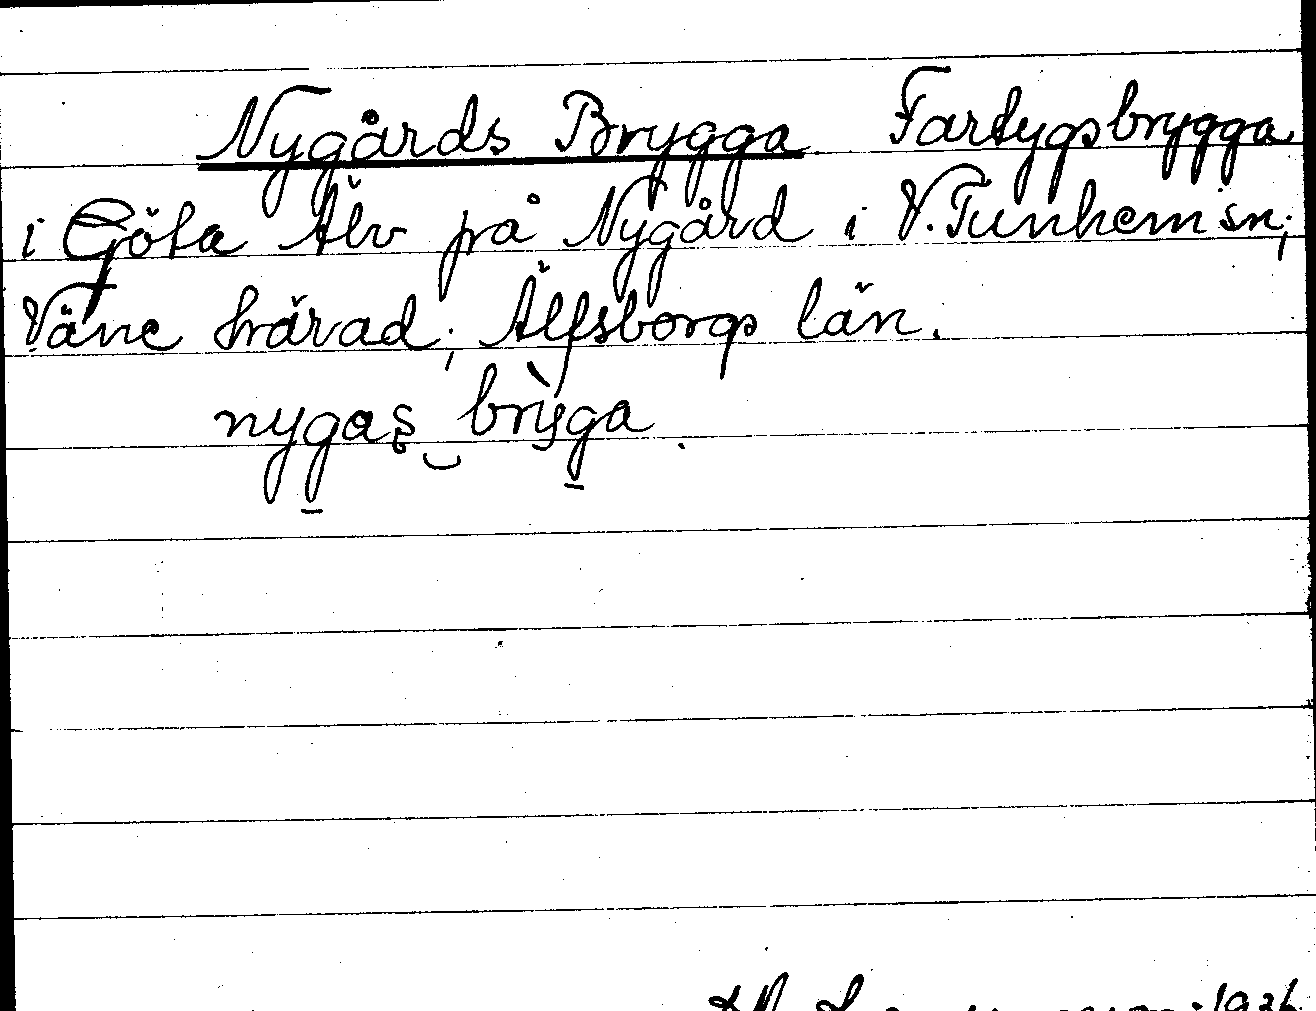 Nygårds Brygga Fartygsbrygga
i Göta Älv på Nygård i V. Tunhem sn;
Väne härad; Älfsborgs län.
nygaʂ‿brỳga.